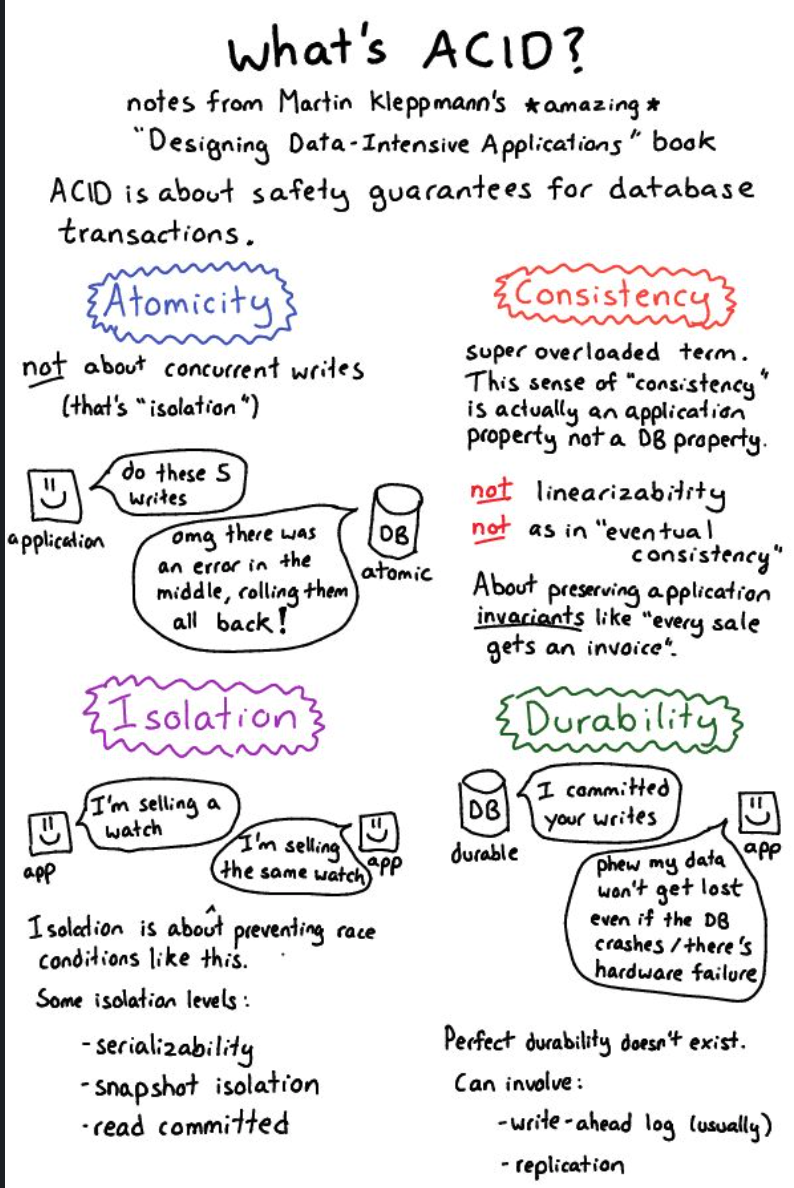 What's ACID?
notes from Martin Kleppmann's *amazing*
"Designing Data-Intensive Applications" book
ACID is about safety guarantees for database
transactions.
Atomicity
not about concurrent writes
(that's "isolation")
do these 5
writes
application
omg there was
an error in the
middle, rolling them
all back!
DB
atomic
Consistency
super overloaded term.
This sense of "consistency"
is actually an application
property not a DB property.
not linearizability
not as in "eventual
consistency"
About preserving application
invariants like "every sale
gets an invoice".
Isolation
I'm selling a
watch
app
I'm selling
the same watch
app
Isolation is about preventing race
conditions like this.
Some isolation levels:
- serializability
- snapshot isolation
- read committed
Durability
DB
durable
I committed
your writes
app
phew my data
won't get lost
even if the DB
crashes / there's
hardware failure
Perfect durability doesn't exist.
Can involve:
- write-ahead log (usually)
- replication